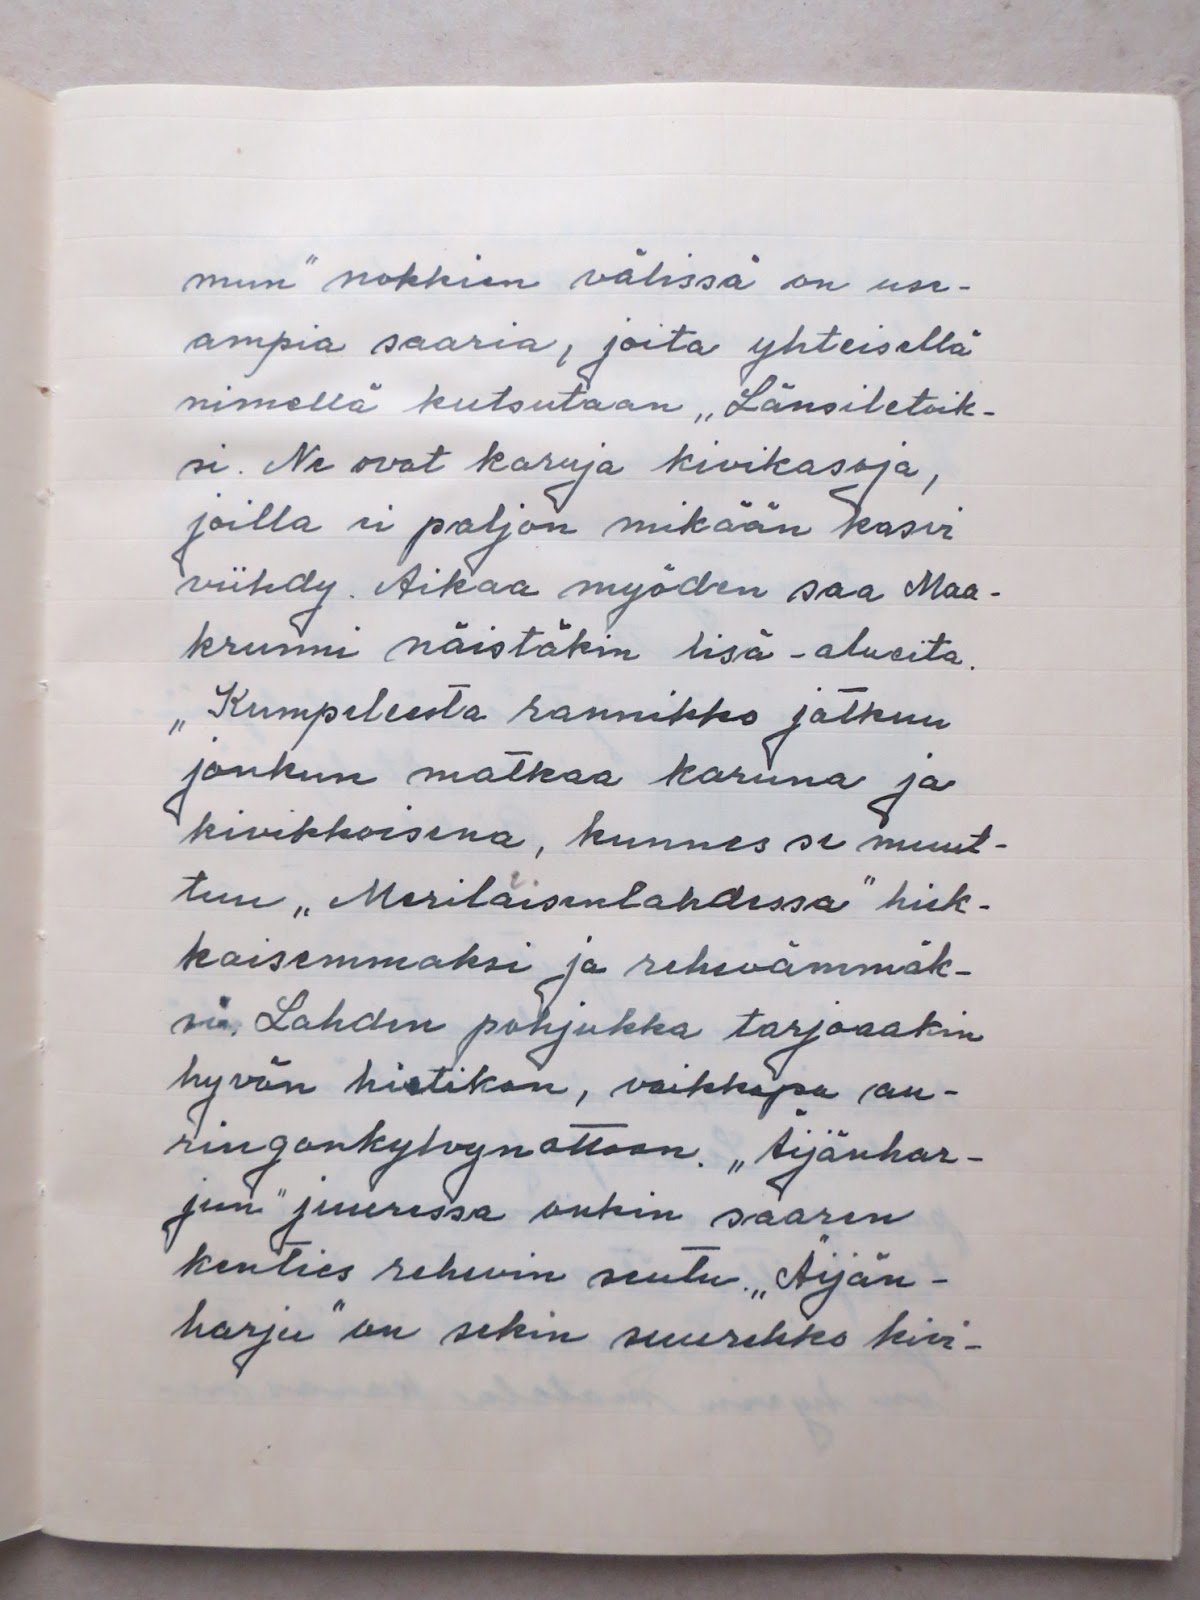 mun" nokkien välissä on use-
ampia saaria, joita yhteisellä
nimellä kutsutaan „Länsiletoik-
si. Ne ovat karuja kivikasoja,
joilla ei paljon mikään kasvi
viihdy. Aikaa myöden saa Maa-
krunni näistäkin lisä-alueita.
„Kumpeleesta rannikko jatkuu
jonkun matkaa karuna ja
kivikkoisena, kunnes se muut-
tuu „Meriläisenlahdessa" hiek-
kaisemmaksi ja rehevämmäk-
si. Lahden pohjukka tarjoaakin
hyvän hietikon, vaikkapa au-
ringonkylvynottoon. „Äijänhar-
jun" juuressa onkin saaren
kenties rehevin seutu. „Äijän-
harju" on sekin suurehko kivi-